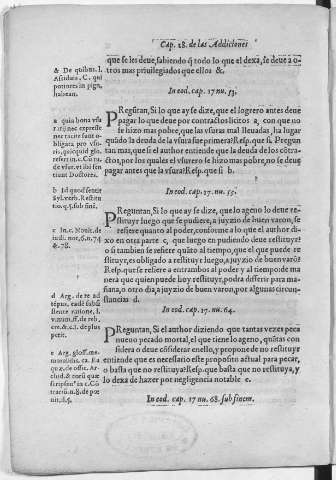 Cap. 28. de las Addiciones
que se les deue, sabiendo q̃ todo lo que el dexa, se deue a o-
tros mas priuilegiados que ellos &.
& De quibus. l.
Assiduis, C. qui
potiores in pign.
habean.
In eod. cap. 17 nu. 53.
PRegũtan, Si lo que ay se dize, que el logrero antes deue
pagar lo que deue por contractos licitos a, con que no
se hizo mas pobre, que las vsuras mal lleuadas, ha lugar
quãdo la deuda de la vsura fue primera? Resp. que si. Pregun
tan mas, que si el author entiende que la deuda de los cõtra-
ctos, por los quales el vsurero se hizo mas pobre, no se deue
pagar antes que la vsura? Resp. que si b.
a quia bona vsu
rarij nec expresse
nec tacite sunt o-
bligata pro vsu-
ris, quicquid glo.
refert in c. Cũ tu.
de vsur. et ibi sen
tiant Doctores.
In eod. cap. 17. nu. 55.
b Id quod sentit
Syl. verb. Resti-
tutio. q. 5. sub fine.
PReguntan, Si lo que ay se dize, que lo ageno se deue re-
stituyr luego que se pudiere, a juyzio de buen varon, se
refiere quanto al poder, conforme a lo que el author di-
xo en otra parte c, que luego en pudiendo deue restituyr?
o tambien se refiere quãto al tiempo, que el que puede re
stituyr, es obligado a restituyr luego, a juyzio de buẽ varõ?
Resp. que se refiere a entrambos al poder y al tiempo de ma
nera que quien puede hoy restituyr, podra differir para ma-
ñana, o otro dia, a juyzio de buen varon, por algunas circun-
stancias d.
c In. c. Nouit. de
iudi. not, 6. n. 74
& 78.
In eod. cap. 17. nu. 64.
d Arg. de re ad
tẽpus, eadẽ subsi
stente ratione, l.
vzum. ff. de reb.
cre. & c. 1. de plus
petit.
PReguntan, Si el author diziendo que tantas vezes peca
nueuo pecado mortal, el que tiene lo ageno, quãtas con
sidera o deue cõsiderar en ello, y propone de no restituyr
entiende que es necessario este proposito actual para pecar,
o basta que no restituya? Resp. que basta que no restituya, y
lo dexa de hazer por negligencia notable e.
e Arg. gloss. me
morabilis. ca. Ea
quæ. de offic. Ar
chid. & eorũ quæ
scripsim° in c. Cõ
not. ii. 5.
In eod. cap. 17 nu. 68. sub finem.